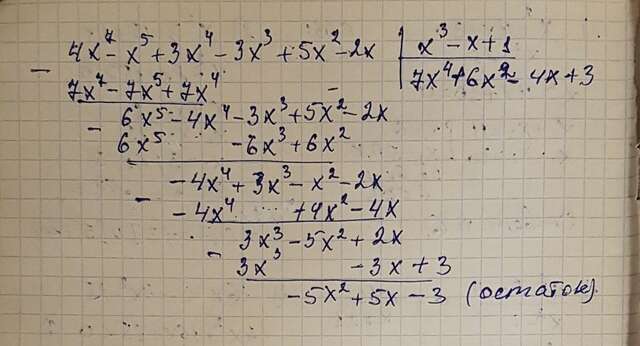 4x⁷ - x⁵ + 3x⁴ - 3x³ + 5x² - 2x | x³ - x + 1
7x⁷ - 7x⁵ + 7x⁴ | 7x⁴ + 6x² - 4x + 3
6x⁵ - 4x⁴ - 3x³ + 5x² - 2x
6x⁵ - 6x³ + 6x²
-4x⁴ + 3x³ - x² - 2x
-4x⁴ + 4x² - 4x
3x³ - 5x² + 2x
3x³ - 3x + 3
-5x² + 5x - 3 (остаток).